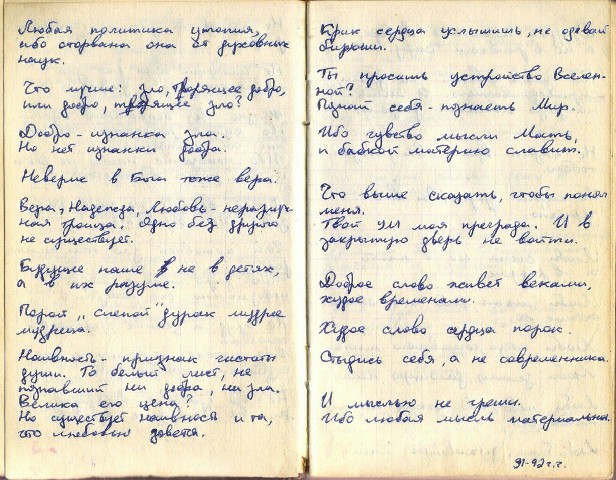 Любая политика утопия,
ибо оторвана она от духовных
наук.
Что лучше: зло, творящее добро,
или добро, творящее зло?
Добро - изнанка зла.
Но нет изнанки добра.
Неверие в Бога тоже вера.
Вера, Надежда, Любовь - неразлуч-
ная троица. Одно без другого
не существует.
Будущее наше не в детях,
а в их разуме.
Порой "слепой" дурак мудрее
мудреца.
Наивность - признак чистоты
души. То белый лист, не
познавший ни добра, ни зла.
Велика его цена?
Но существует наивность и та,
что любовью зовётся.
Крик сердца услышишь, не одевай
бируши.
Ты просишь устройство Вселен-
ной?
Познай себя - познаешь Мир.
Ибо чувство мысли Мать,
и бабкой материю славит.
Что выше сказать, чтобы понял
меня.
Твой ум моя преграда. И в
закрытую дверь не войти.
Доброе слово живёт веками,
худое временами.
Худое слово сердца порок.
Стыдись себя, а не современника.
И мыслью не греши.
Ибо любая мысль материальна.
91-92 г.г.